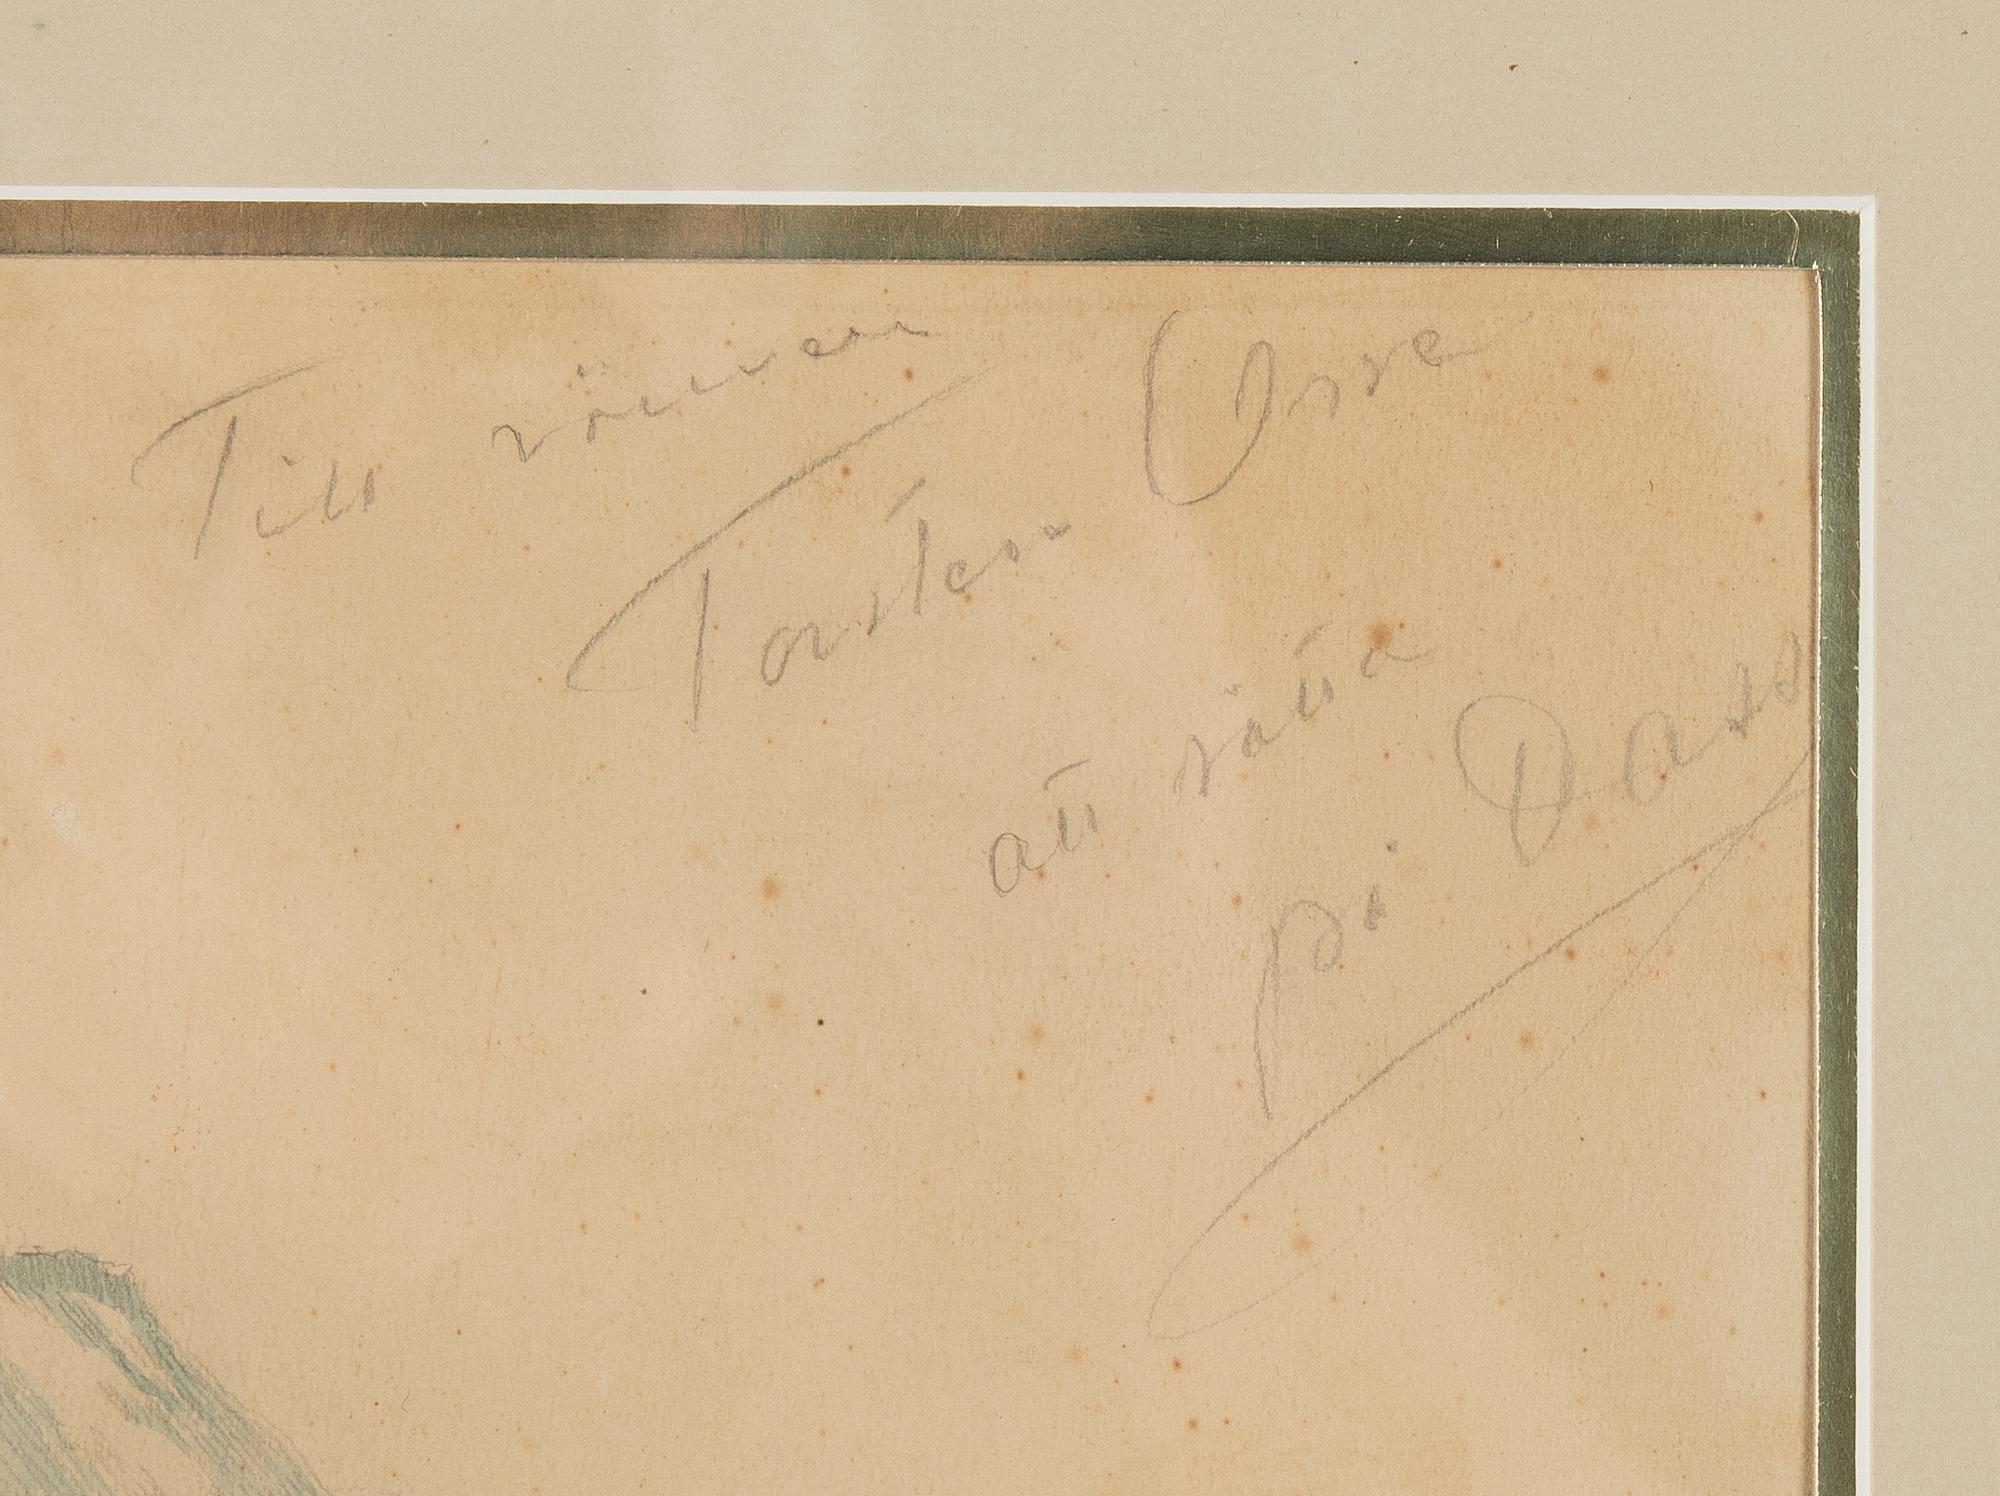 Till vännen
Torsten Orre
att sätta
på Dass